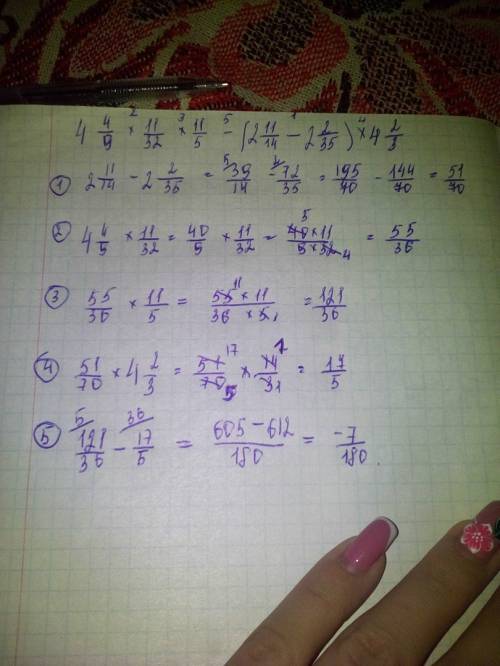 4 4/9 × 11/32 × 11/5 − (2 11/14 − 2 2/35) × 4 2/3
① 2 11/14 − 2 2/35 = 39/14 − 72/35 = 195/70 − 144/70 = 51/70
② 4 4/9 × 11/32 = 40/9 × 11/32 = 40×11/9×32 = 55/36
③ 55/36 × 11/5 = 55×11/36×5 = 121/36
④ 51/70 × 4 2/3 = 51/70 × 14/3 = 17/5
⑤ 121/36 − 17/5 = 605−612/180 = −7/180.